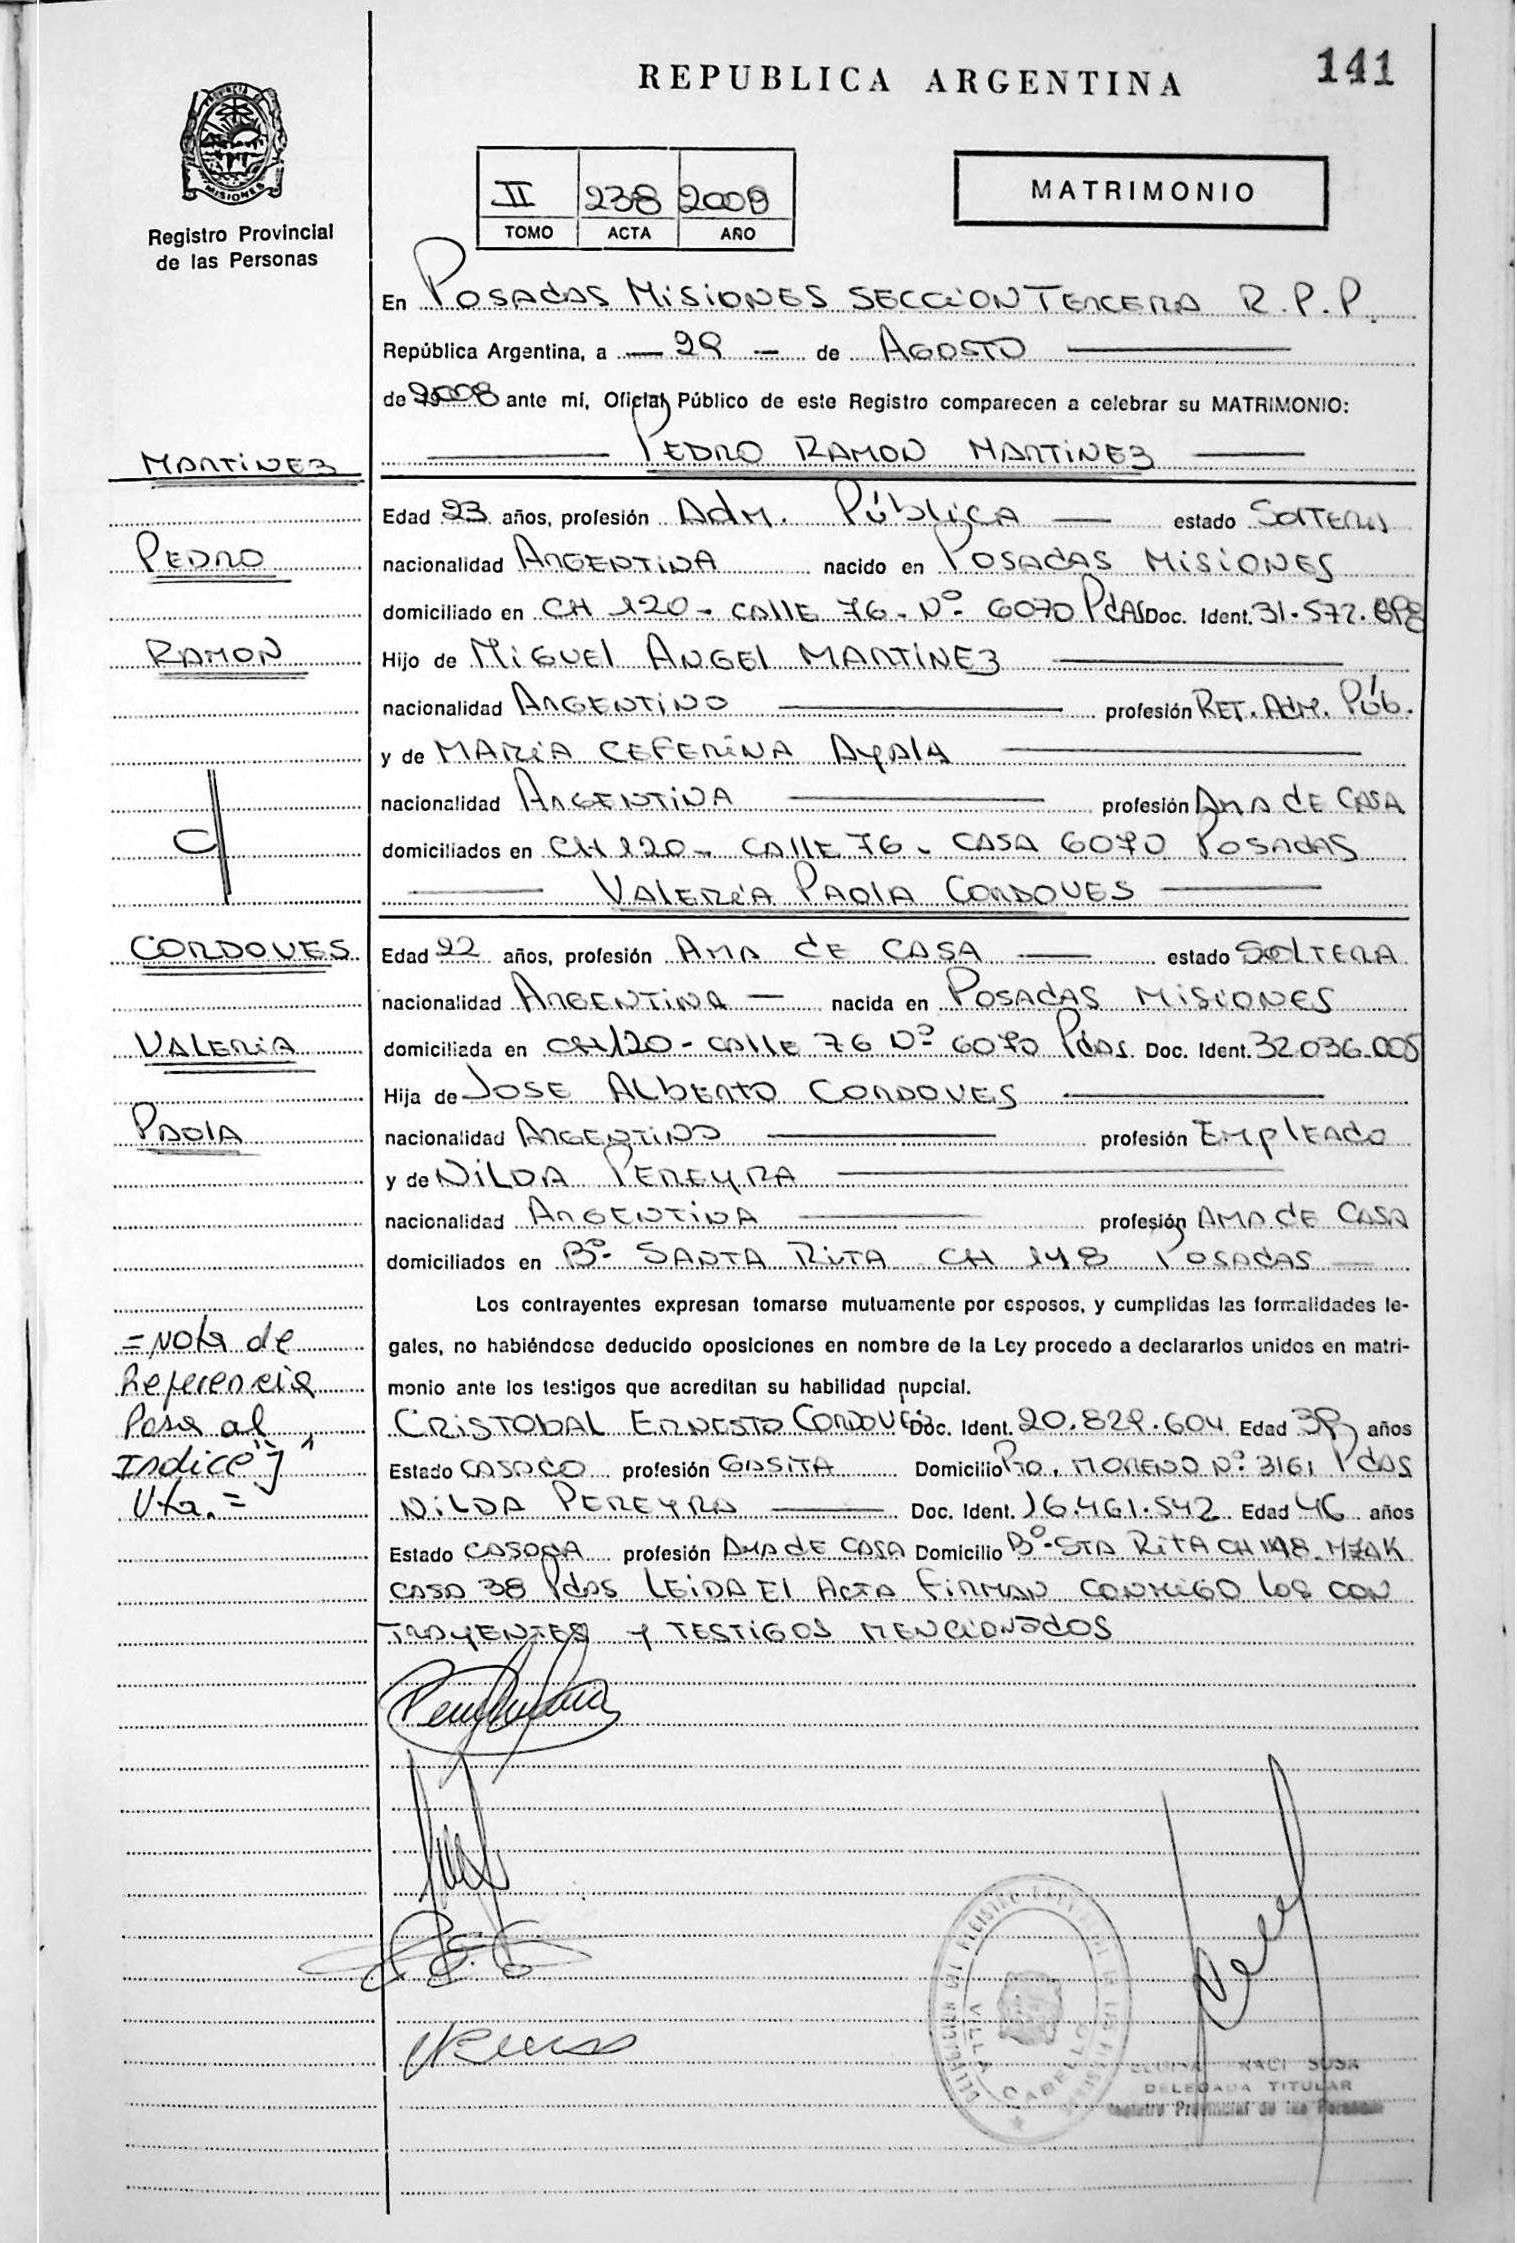 REPUBLICA ARGENTINA
141
PROVINCIA DE
MISIONES
Registro Provincial
de las Personas
II 238 2008
TOMO ACTA AÑO
MATRIMONIO
En POSADAS MISIONES SECCION TERCERA R.P.P.
República Argentina, a — 29 — de AGOSTO
de 2008 ante mí, Oficial Público de este Registro comparecen a celebrar su MATRIMONIO:
PEDRO RAMON MARTINEZ
MARTINEZ
PEDRO
RAMON
Edad 23 años, profesión Adm. Pública — estado
nacionalidad ARGENTINA nacido en POSADAS MISIONES
domiciliado en CH 120 - CALLE 76 - Nº 6070 Pdas Doc. Ident. 31.572.
Hijo de MIGUEL ANGEL MARTINEZ
nacionalidad ARGENTINO profesión RET. ADM. Púb.
y de MARIA CEFERINA AYALA
nacionalidad ARGENTINA profesión AMA DE CASA
domiciliados en CH 120 - CALLE 76 - CASA 6070 POSADAS
VALERIA PAOLA CORDOVES
CORDOVES
VALERIA
PAOLA
Edad 22 años, profesión AMA DE CASA — estado SOLTERA
nacionalidad ARGENTINA — nacida en POSADAS MISIONES
domiciliada en CH 120 - CALLE 76 Nº 6070 Pdas. Doc. Ident. 32.036.005
Hija de JOSE ALBERTO CORDOVES
nacionalidad ARGENTINO profesión EMPLEADO
y de NILDA PEREYRA
nacionalidad ARGENTINA profesión AMA DE CASA
domiciliados en Bº SANTA RITA CH 148 POSADAS —
Los contrayentes expresan tomarse mutuamente por esposos, y cumplidas las formalidades le-
gales, no habiéndose deducido oposiciones en nombre de la Ley procedo a declararlos unidos en matri-
monio ante los testigos que acreditan su habilidad nupcial.
= Nota de
Referencia
Pasa al
Indice "J"
Vta. =
CRISTOBAL ERNESTO CORDOVES Doc. Ident. 20.829.604 Edad 39 años
Estado CASADO profesión GASISTA Domicilio Pto. MORENO Nº 3161 Pdas
NILDA PEREYRA Doc. Ident. 16.461.542 Edad 46 años
Estado CASADA profesión AMA DE CASA Domicilio Bº STA RITA CH 148 MZ K
CASA 38 Pdas LEIDA El ACTA FIRMAN CONMIGO los CON
TRAYENTES Y TESTIGOS MENCIONADOS
VILLA CABELLO
DELEGADA TITULAR
Registro Provincial de las Personas